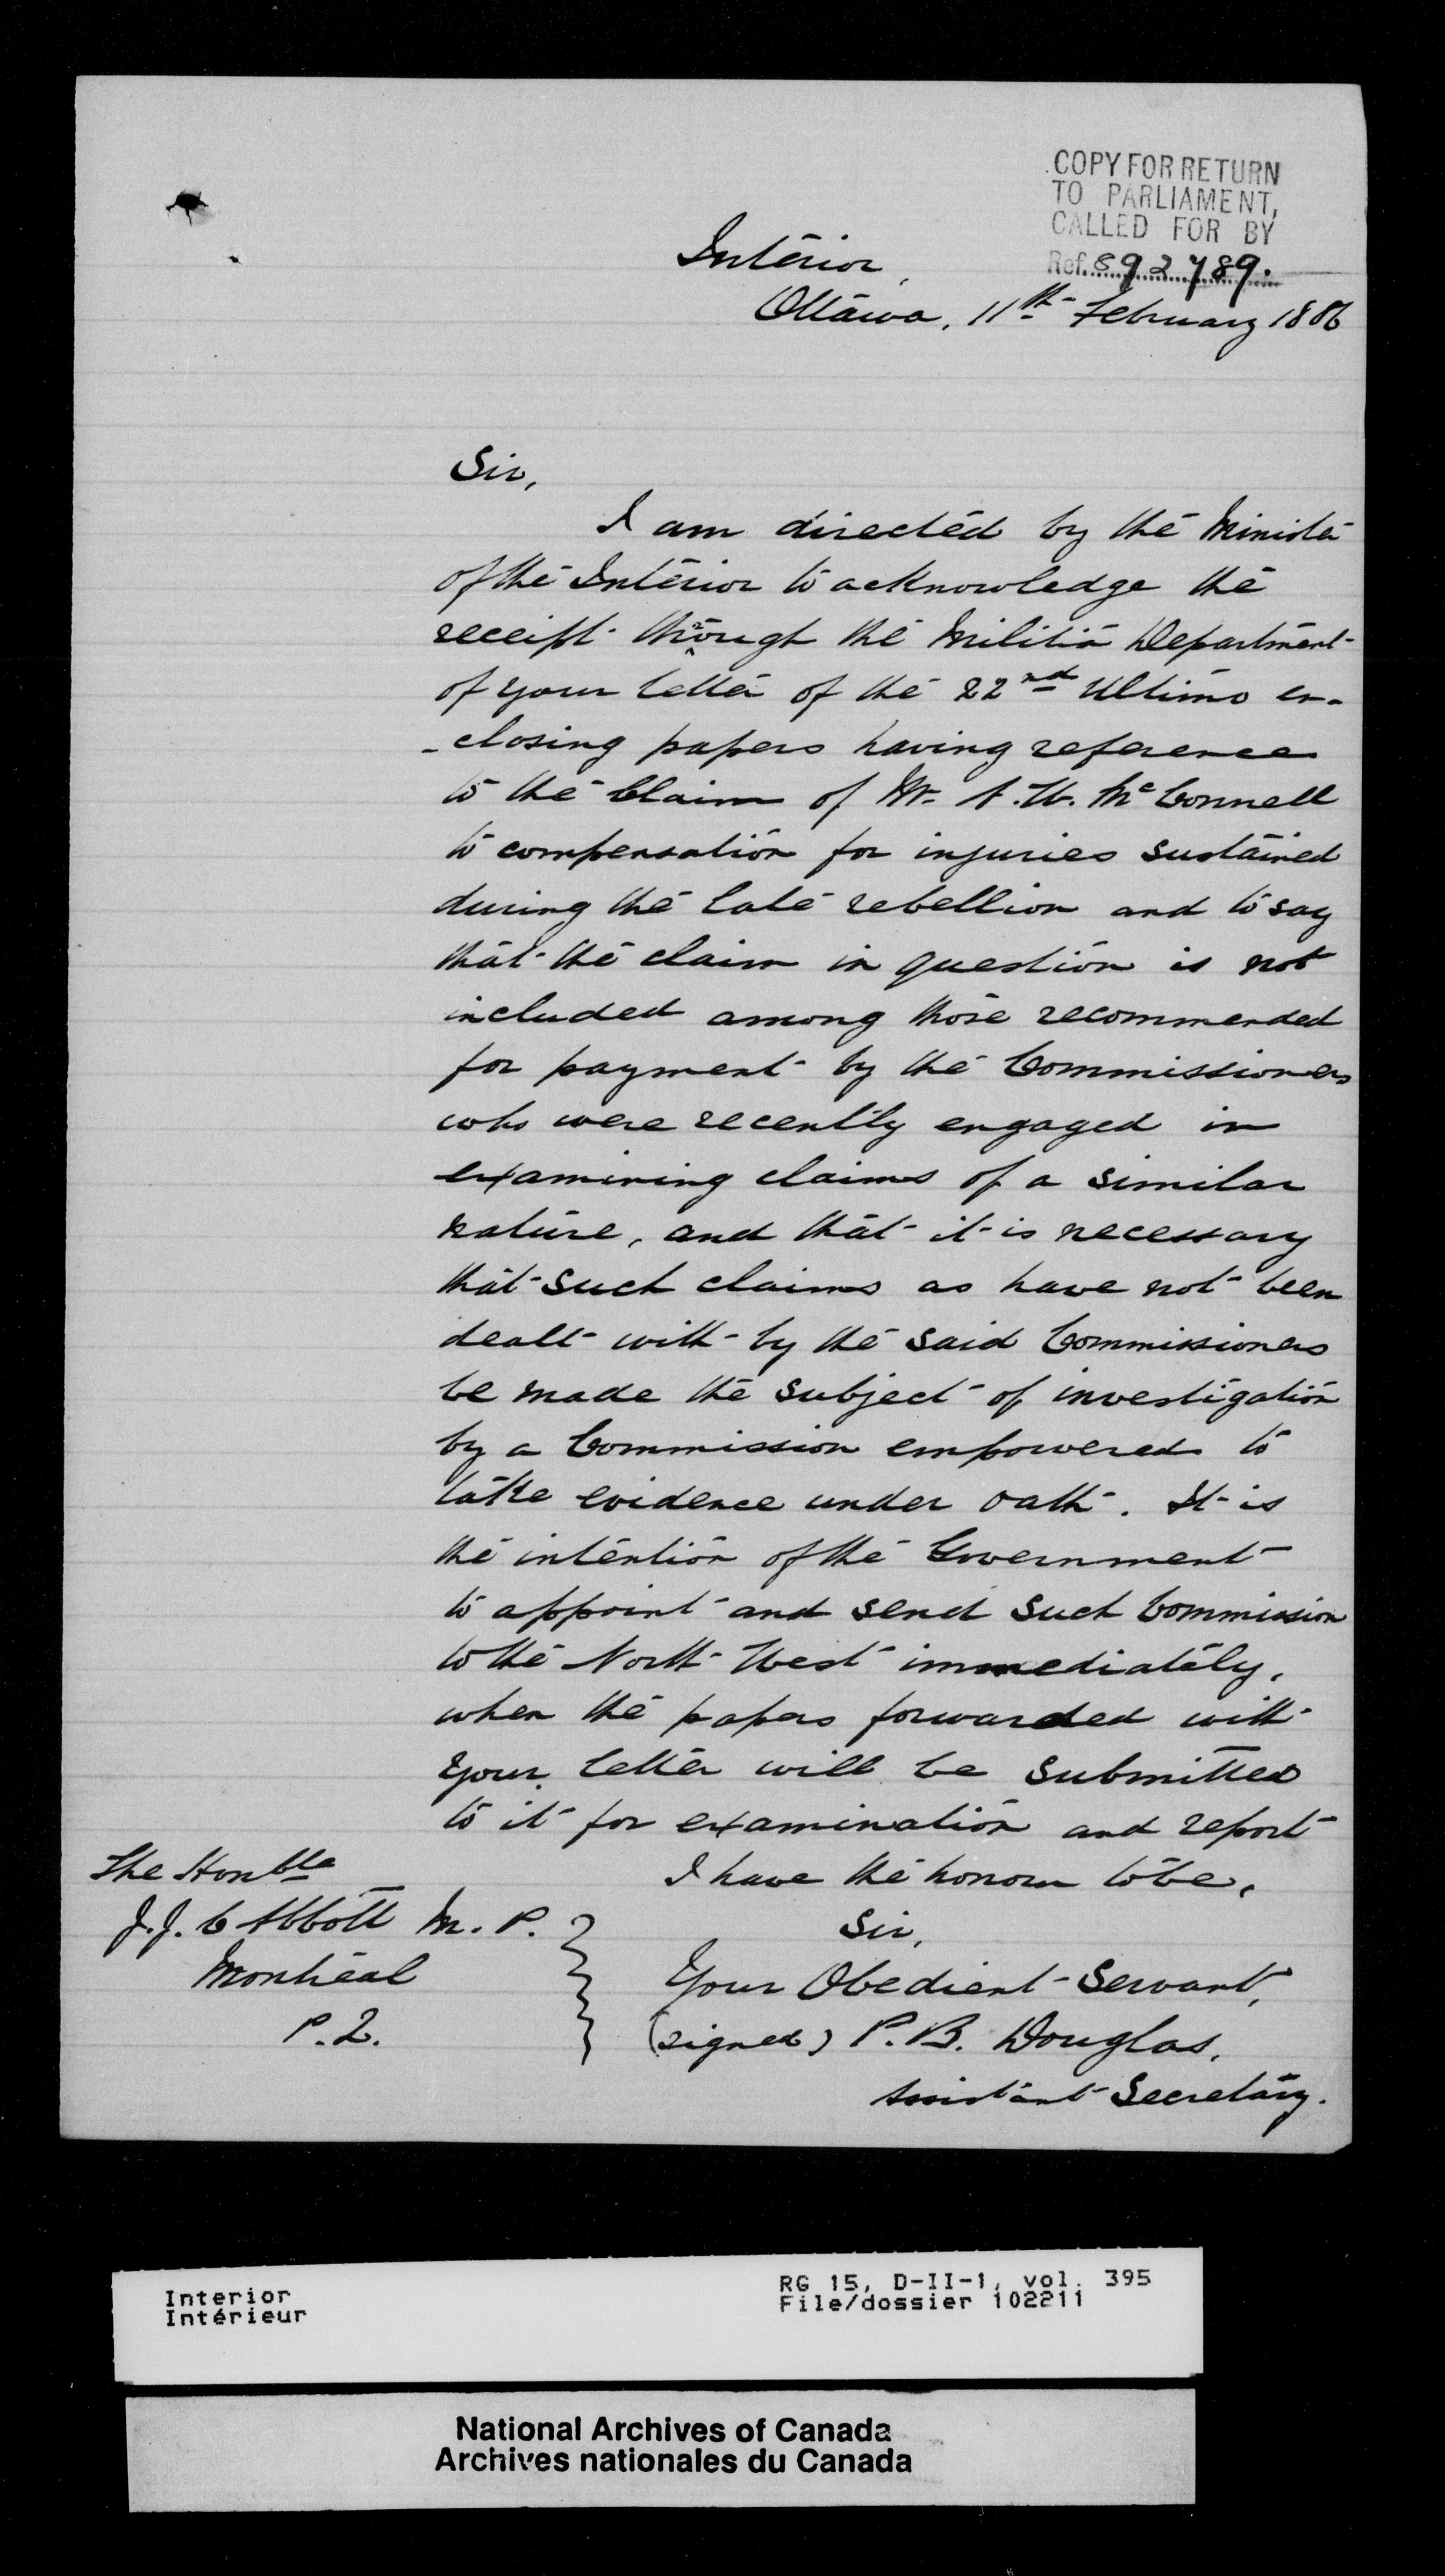 COPY FOR RETURN
TO PARLIAMENT,
CALLED FOR BY
Ref. 892789.
Interior,
Ottawa, 11th February 1886
Sir,
I am directed by the Minister
of the Interior to acknowledge the
receipt through the Militia Department
of your letter of the 22nd Ultimo en-
-closing papers having reference
to the Claim of Mr. A. W. McConnell
to compensation for injuries sustained
during the late rebellion and to say
that the claim in question is not
included among those recommended
for payment by the Commissioners
who were recently engaged in
examining claims of a similar
nature, and that it is necessary
that such claims as have not been
dealt with by the said Commissioners
be made the subject of investigation
by a Commission empowered to
take evidence under oath. It is
the intention of the Government
to appoint and send such Commission
to the North West immediately,
when the papers forwarded with
your letter will be submitted
to it for examination and report
I have the honour to be,
Sir,
Your Obedient Servant,
(signed) P. B. Douglas,
Assistant Secretary.
The Honble
J. J. C Abbott M. P.
Montreal
P. Q.
Interior
Intérieur
RG 15, D-II-1, vol. 395
File/dossier 102211
National Archives of Canada
Archives nationales du Canada